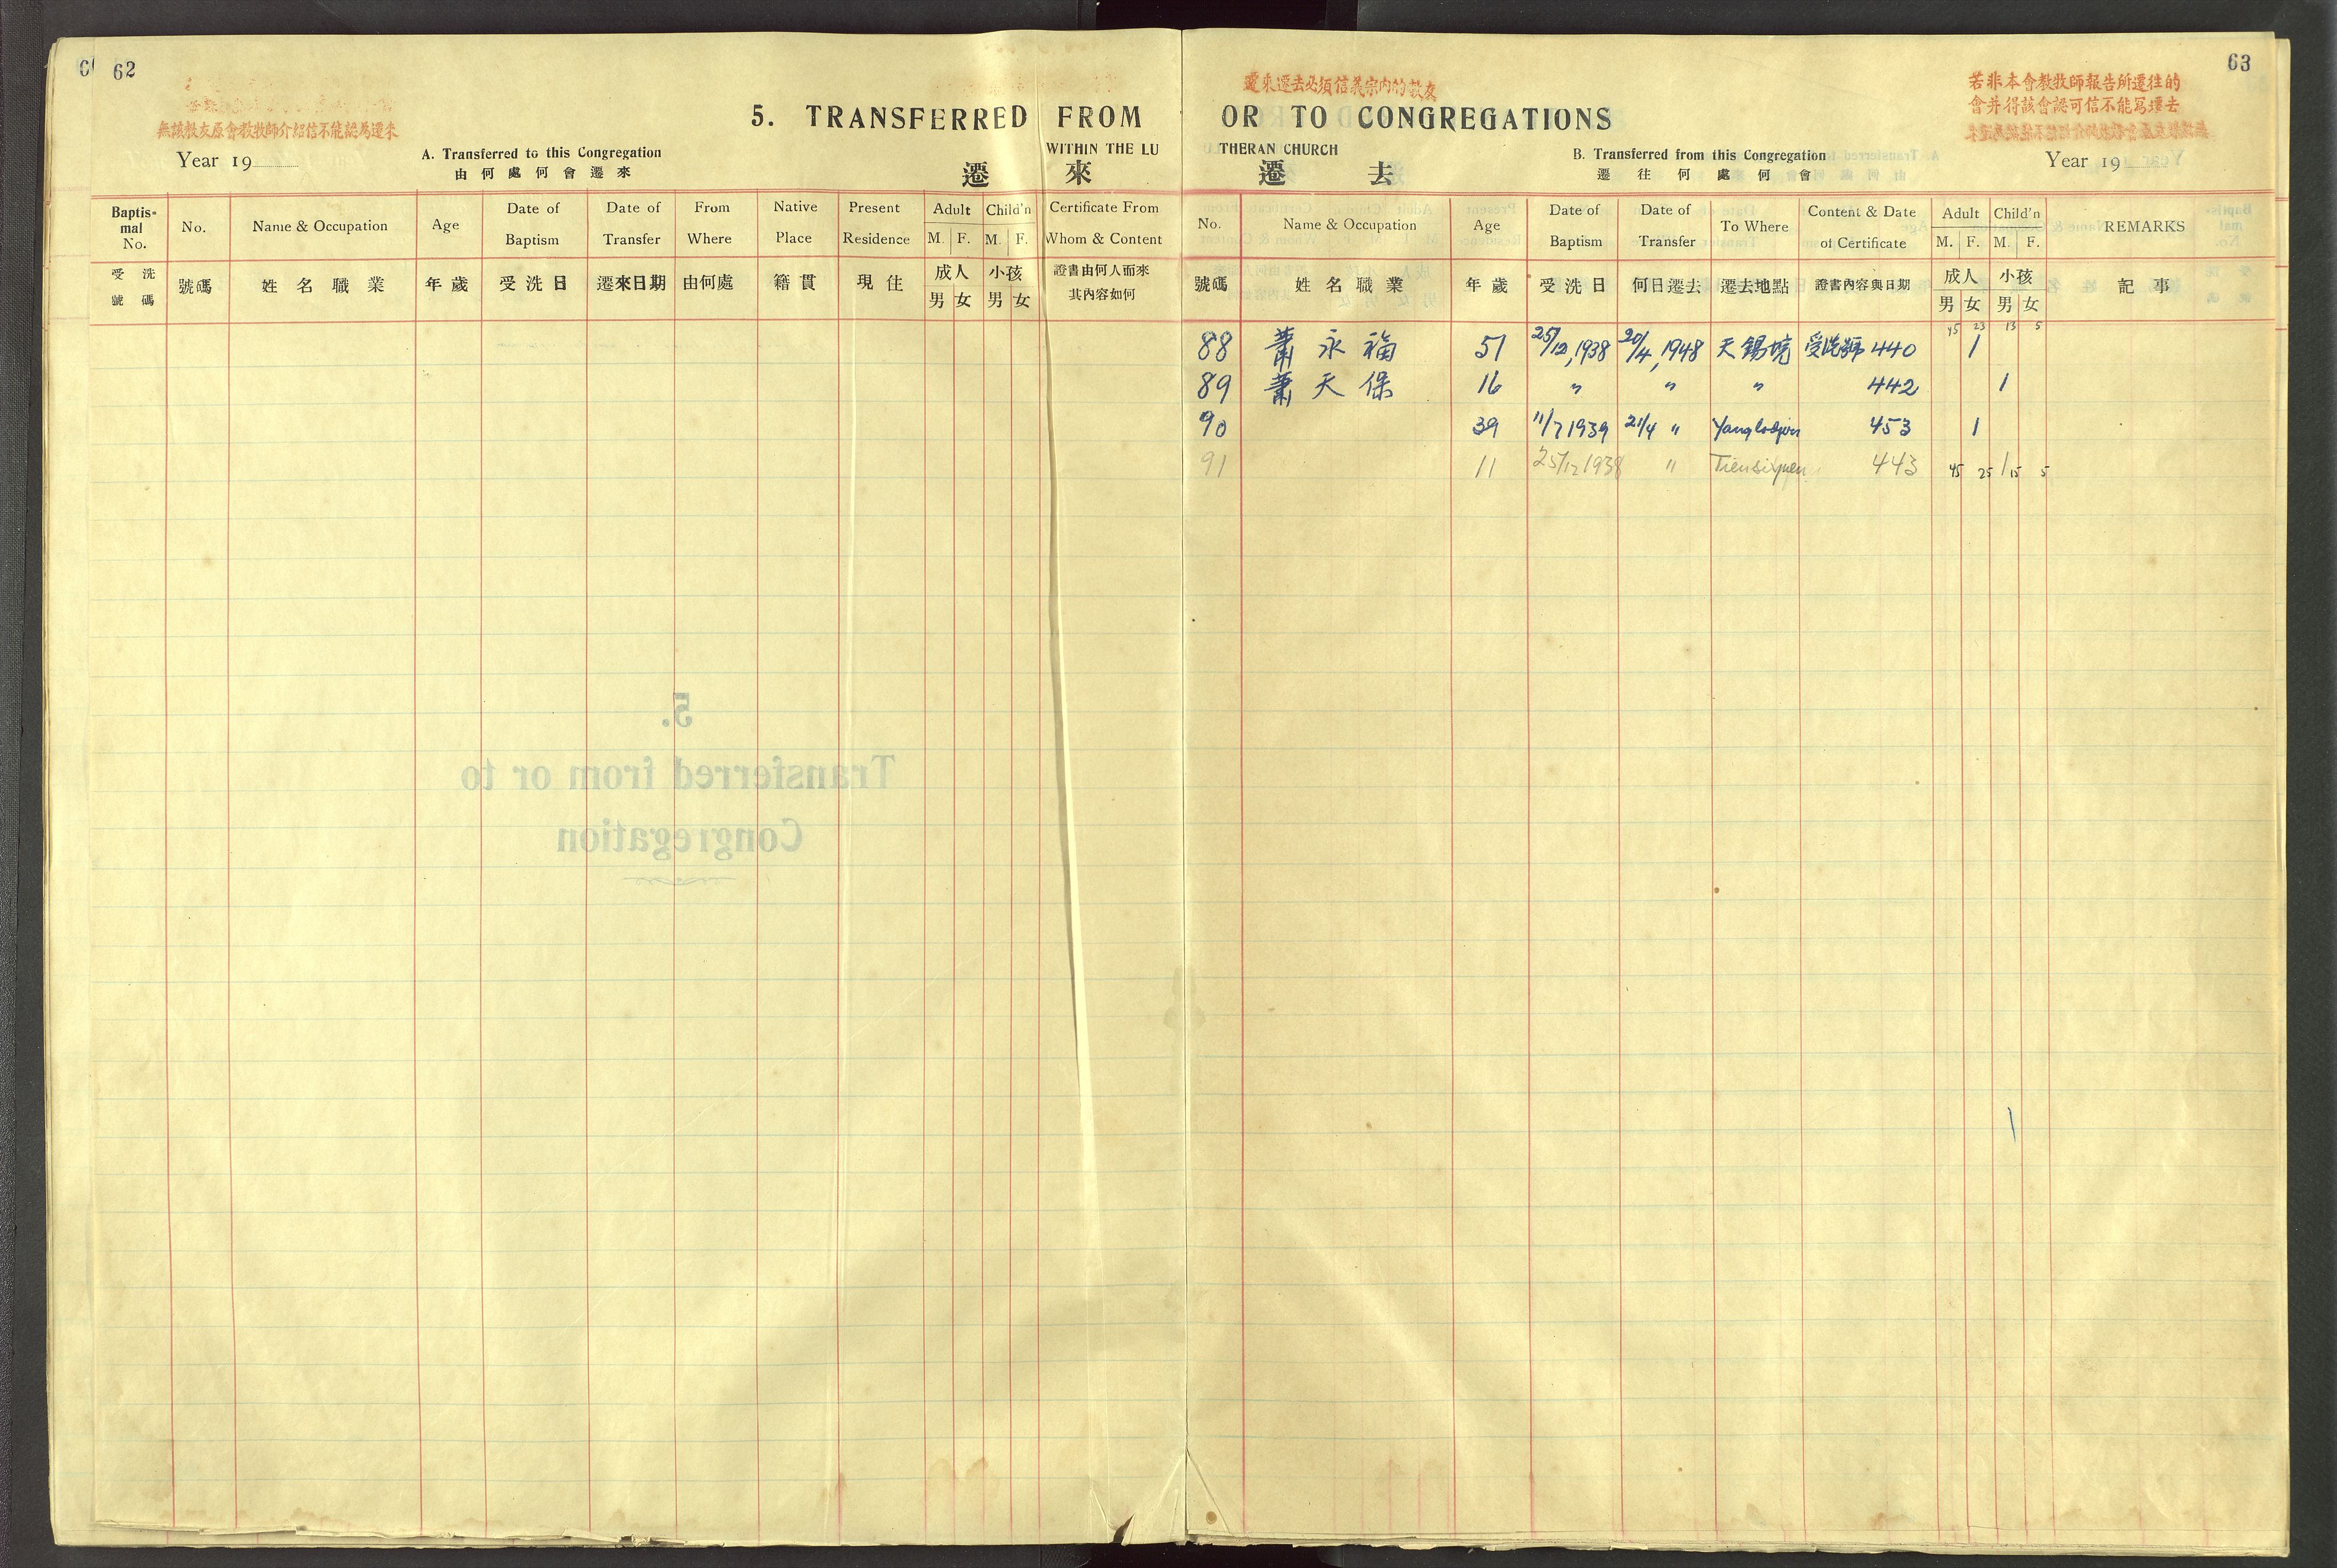 62
無該教友原會教牧師介紹信不能認為遷來
Year 19
5. TRANSFERRED FROM
A. Transferred to this Congregation
WITHIN THE LU
由何處何會遷來
遷 來
Baptismal No.
No.
Name & Occupation
Age
Date of Baptism
Date of Transfer
From Where
Native Place
Present Residence
Adult
Child'n
M. F. M. F.
Certificate From Whom & Content
受洗號碼
號碼
姓名職業
年歲
受洗日
遷來日期
由何處
籍貫
現住
成人
小孩
男 女 男 女
證書由何人而來
其內容如何
5.
Transferred from or to
Congregation
63
遷來遷去必須信義宗內的教友
若非本會教牧師報告所遷往的
會并得該會認可信不能寫遷去
OR TO CONGREGATIONS
THERAN CHURCH
B. Transferred from this Congregation
Year 19
遷 去
遷往何處何會
No.
Name & Occupation
Age
Date of Baptism
Date of Transfer
To Where
Content & Date of Certificate
Adult
Child'n
M. F. M. F.
REMARKS
號碼
姓名職業
年歲
受洗日
何日遷去
遷去地點
證書內容與日期
成人
小孩
男 女 男 女
記事
45 23 13 5
88 蕭永福 51 25/12,1938 20/4,1948 天錫 440 1
89 蕭天保 16 〃 〃 〃 442 1
90 39 11/7 1939 21/4 〃 453 1
91 11 25/12 1938 〃 443 45 25 1 15 5